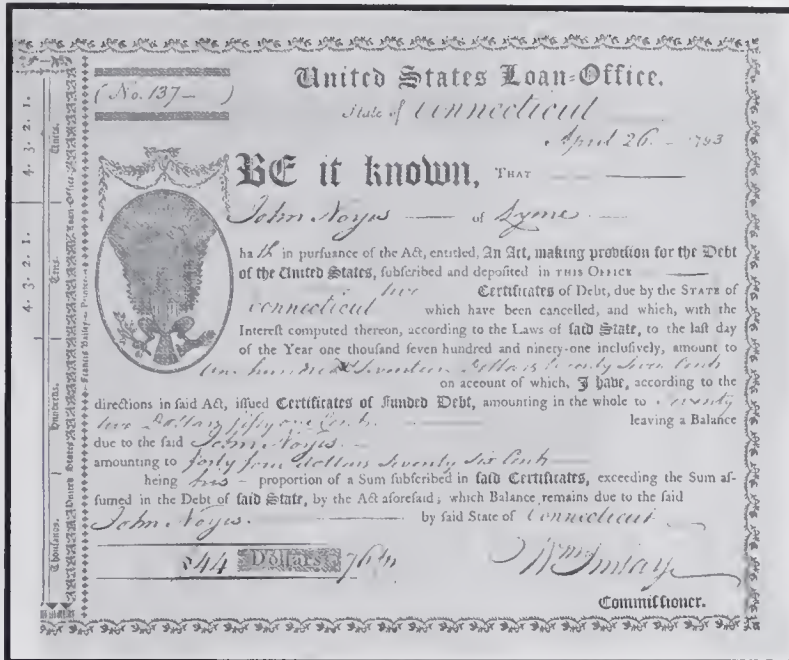 United States Loan-Office.
(No. 137- )
State of Connecticut
April 26 - 1793
BE it known, THAT
John Noyes of Lyme
hath in purſuance of the Act, entitled, An Act, making proviſion for the Debt
of the United States, ſubſcribed and depoſited in THIS OFFICE
Certificates of Debt, due by the STATE of
Connecticut which have been cancelled, and which, with the
Intereſt computed thereon, according to the Laws of ſaid State, to the laſt day
of the Year one thouſand ſeven hundred and ninety-one incluſively, amount to
hundred Seventeen Dollars Seven Cents
on account of which, I have, according to the
directions in ſaid Act, iſſued Certificates of Funded Debt, amounting in the whole to
Dollars fifty one Cents leaving a Balance
due to the ſaid John Noyes
amounting to forty four dollars Seventy Six Cents
being his - proportion of a Sum ſubſcribed in ſaid Certificates, exceeding the Sum aſ-
ſumed in the Debt of ſaid State, by the Act aforeſaid; which Balance remains due to the ſaid
John Noyes. by ſaid State of Connecticut
$44 Dollars 76
Wm Imlay
Commiſſioner.
4. 3. 2. 1. Units.
4. 3. 2. 1. Tens.
Hundreds.
Thouſands.
United States Loan-Office
Francis Bailey Printer